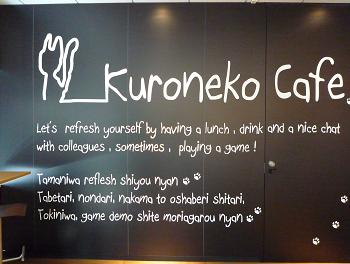 Kuroneko Cafe
Let's refresh yourself by having a lunch, drink and a nice chat
with colleagues, sometimes, playing a game!
Tamaniwa reflesh shiyou nyan
Tabetari, nondari, nakama to oshaberi shitari,
Tokiniwa, game demo shite moriagarou nyan